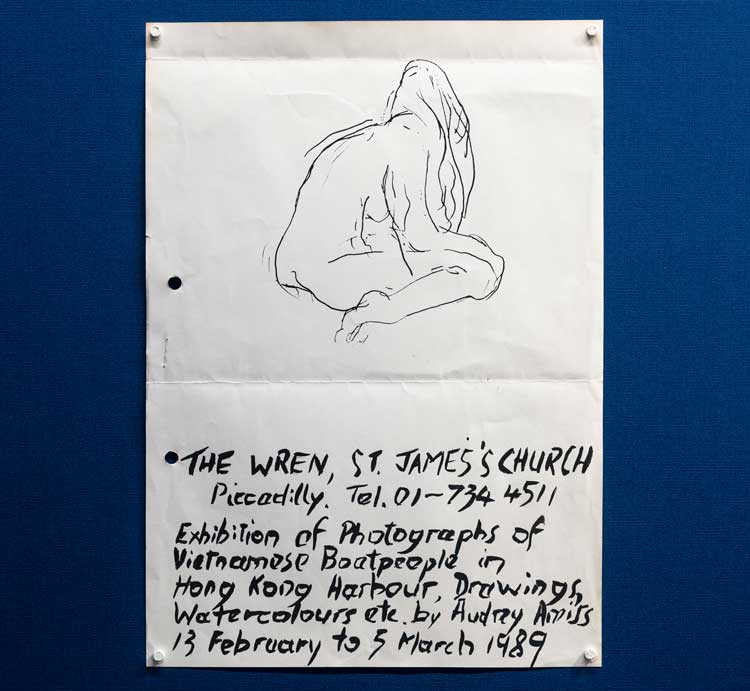 THE WREN, ST. JAMES'S CHURCH
Piccadilly. Tel. 01-734 4511
Exhibition of Photographs of
Vietnamese Boatpeople in
Hong Kong Harbour, Drawings,
Watercolours etc. by Audrey Amiss
13 February to 5 March 1989